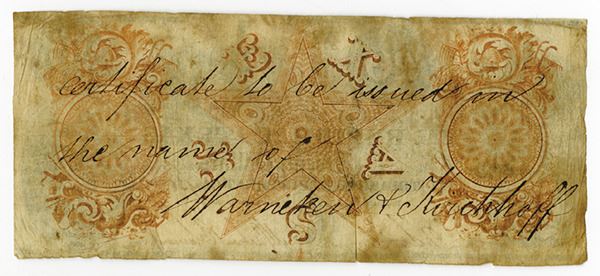 T
E
X
A
S
certificate to be issued in
the name of
Warneken & Kirchhoff